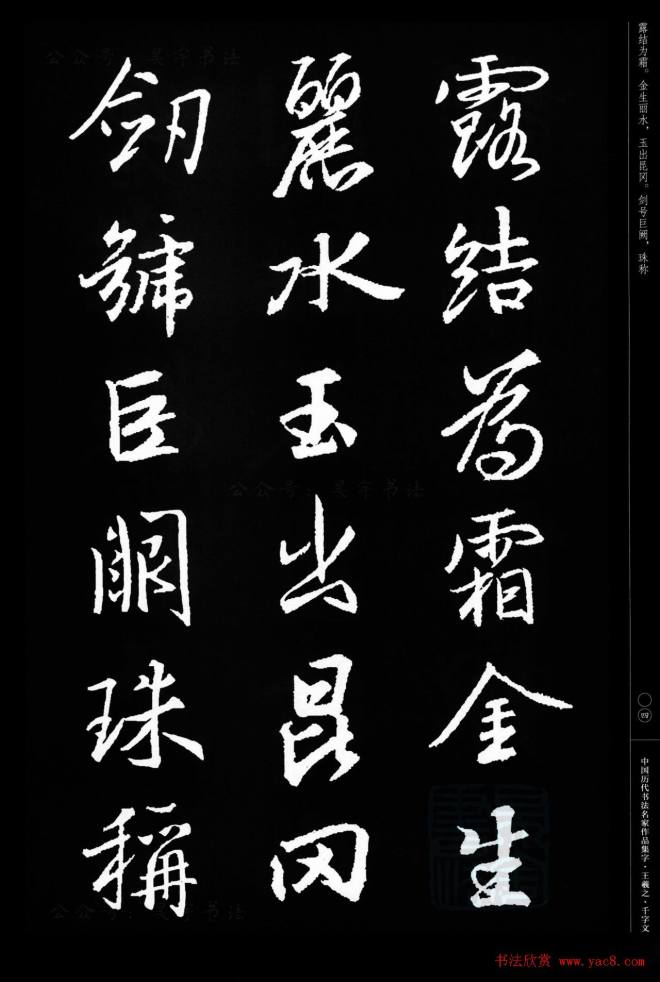 露结为霜。金生丽水，玉出昆冈。剑号巨阙，珠称
露結為霜金生
麗水玉出昆岡
劔號巨闕珠稱
〇四
中国历代书法名家作品集字·王羲之·千字文
书法欣赏 www.yac8.com